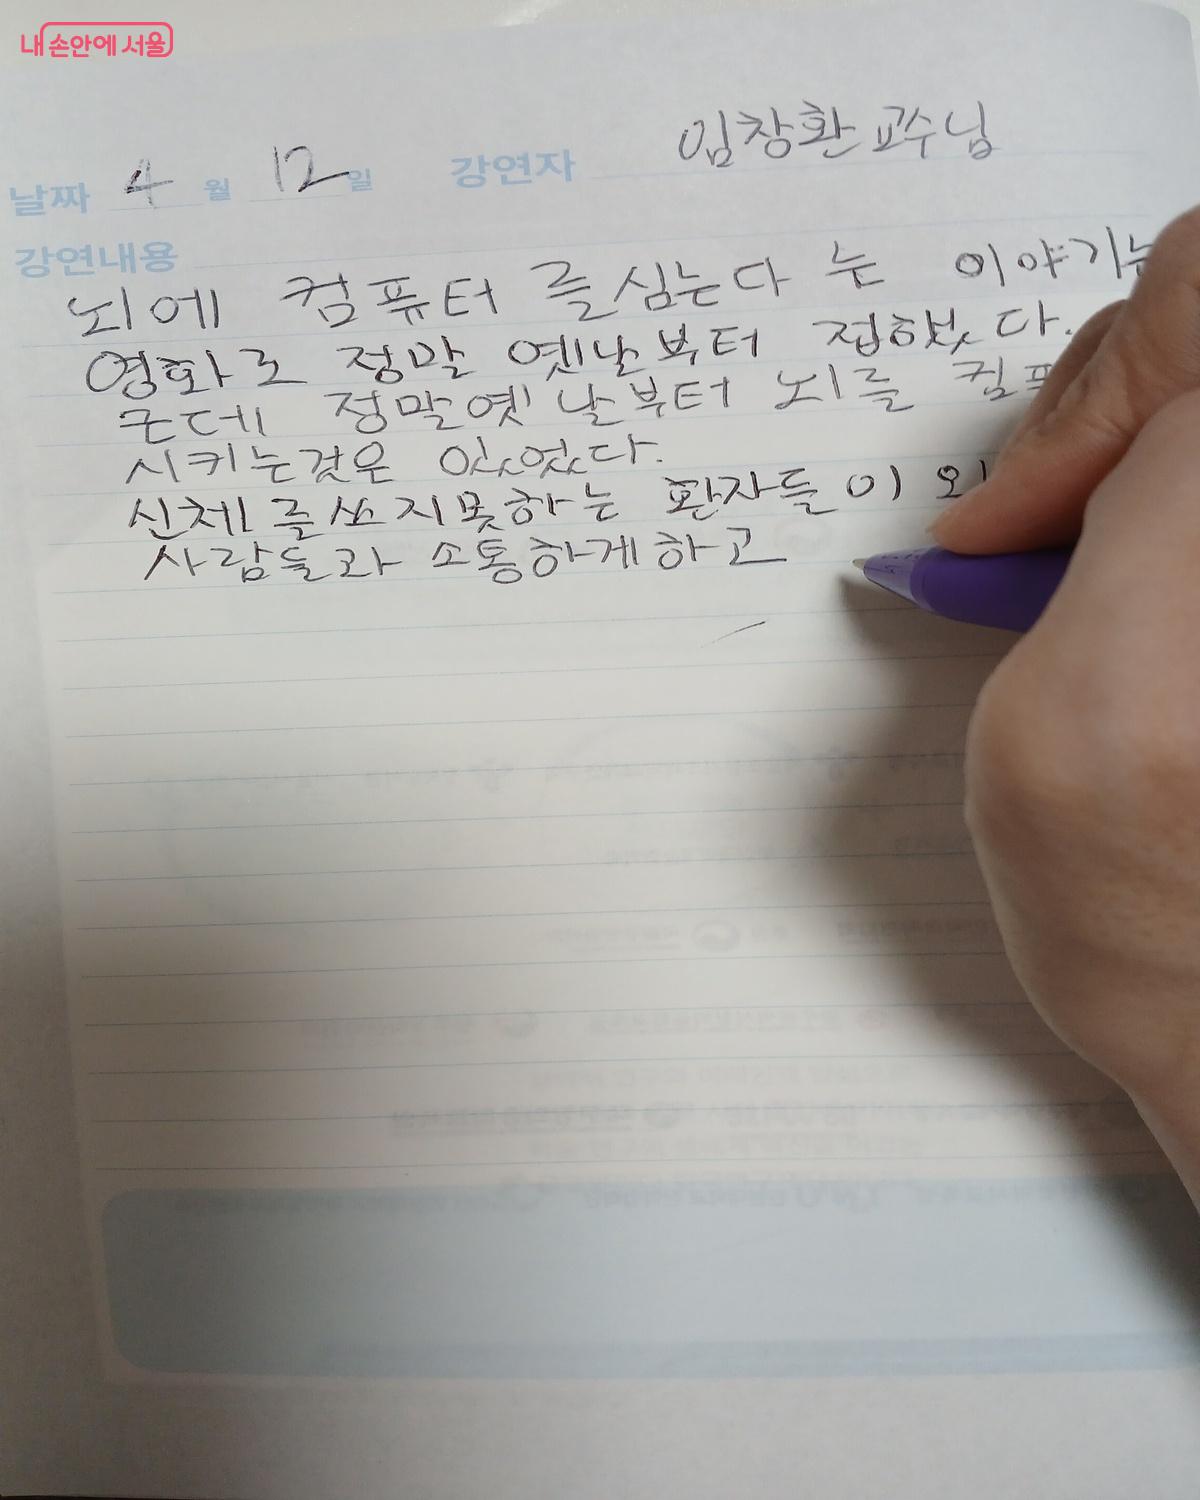 내 손안에 서울
임창환 교수님
날짜 4 월 12 일 강연자
강연내용
뇌에 컴퓨터 를심는다 는 이야기는
영화로 정말 옛날부터 접했다.
근데 정말옛날부터 뇌를
시키는것은 있었다.
신체를쓰지못하는 환자들이
사람들과 소통하게하고